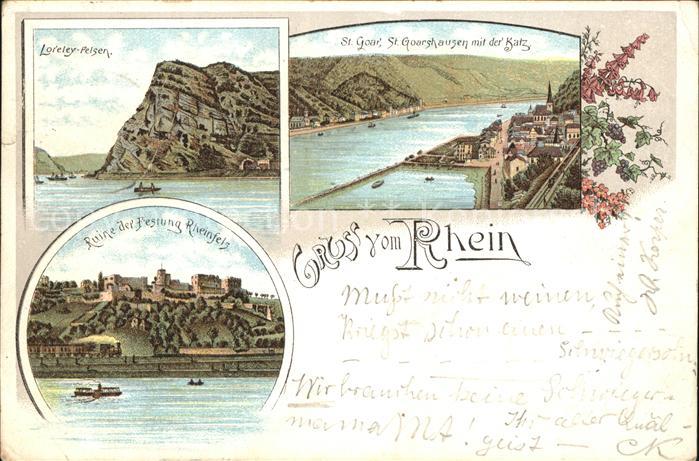 Loreley-Felsen.
St. Goar, St. Goarshausen mit der Katz
Ruine der Festung Rheinfels
Gruss vom Rhein
Mußt nicht weinen,
Kriegst schon einen
Schwiegersohn
Wir brauchen keine Schwieger-
mama
Ihr alter Quäl-
geist